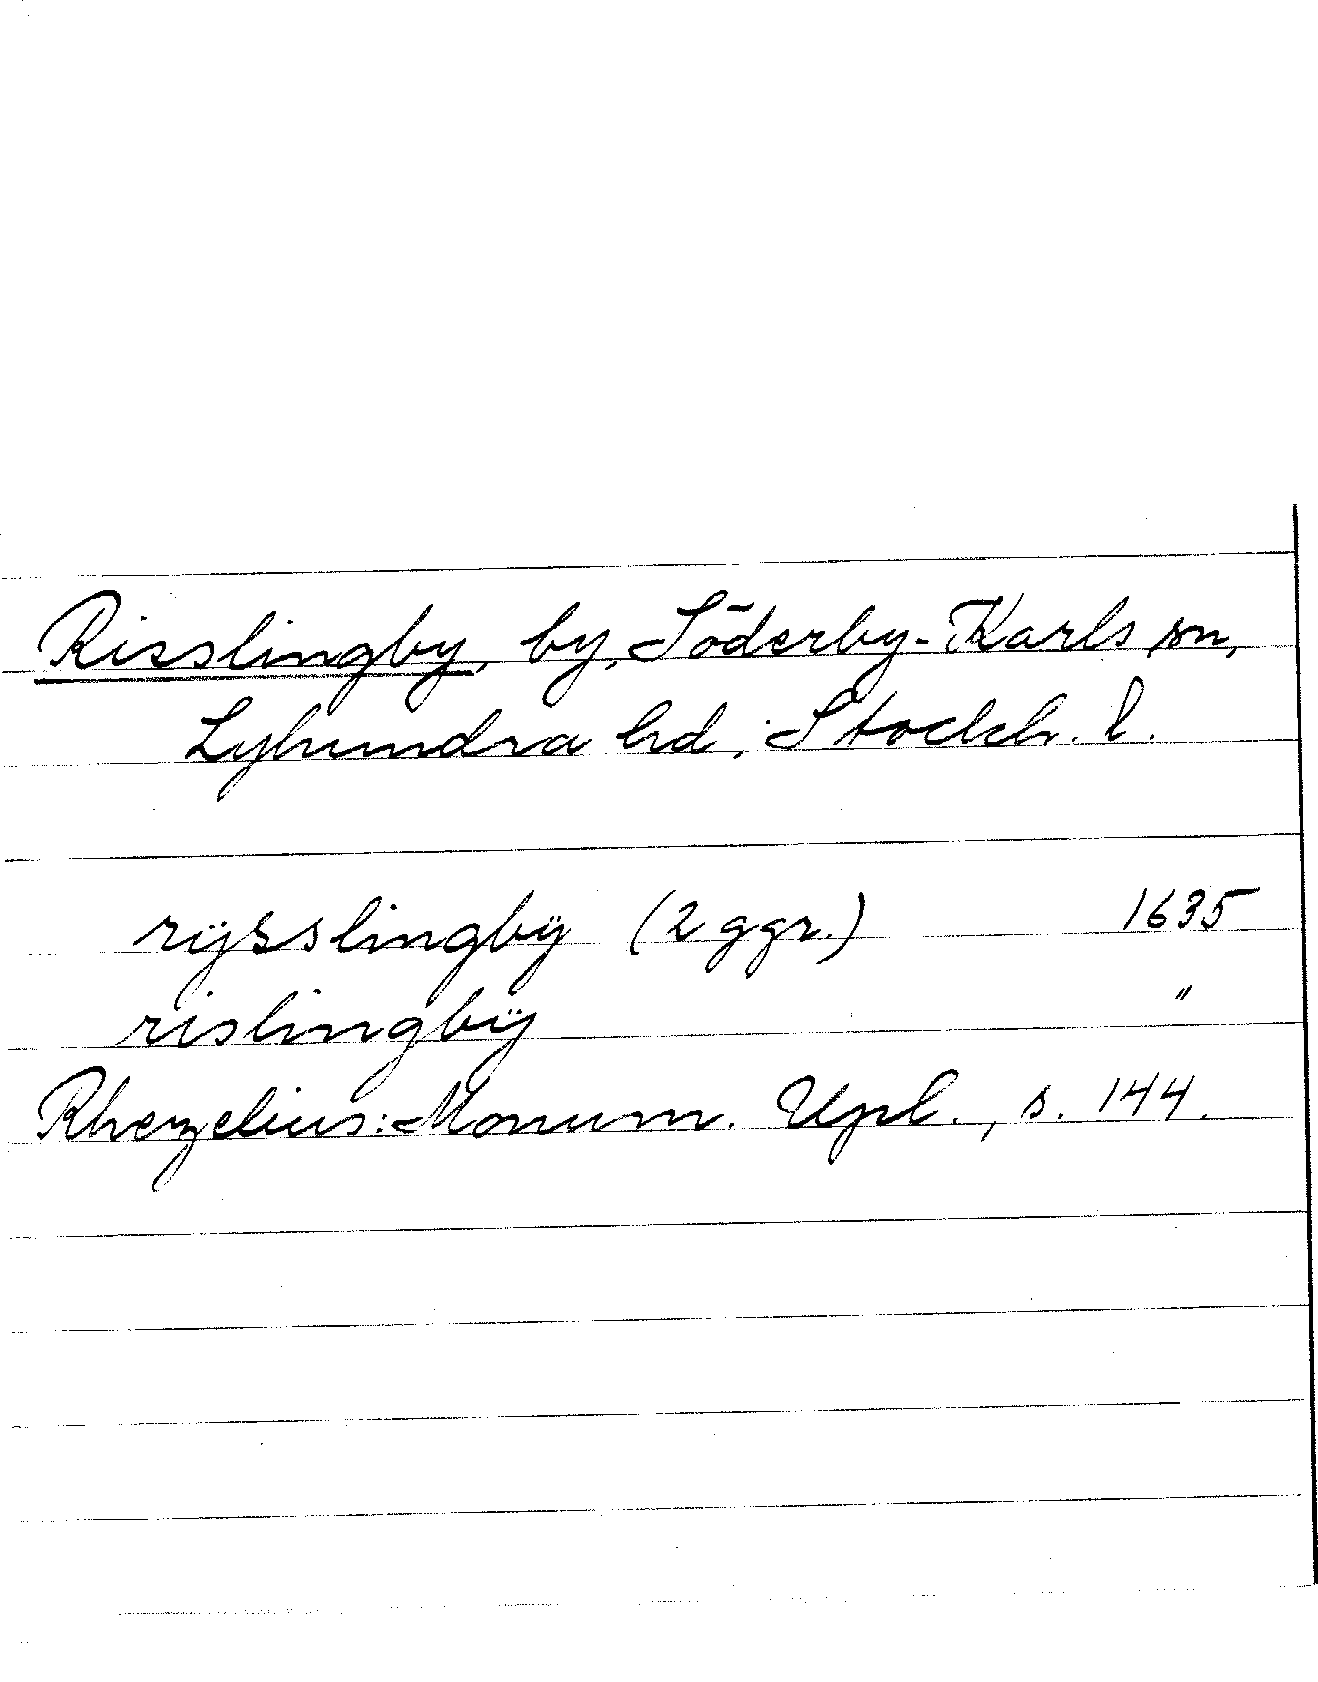 Risslingby, by, Söderby-Karls sn,
Lyhundra hd, Stockh. l.
rÿsslingbÿ (2 ggr.) 1635
rislingbÿ "
Rhezelius: Monum. Upl., s. 144.